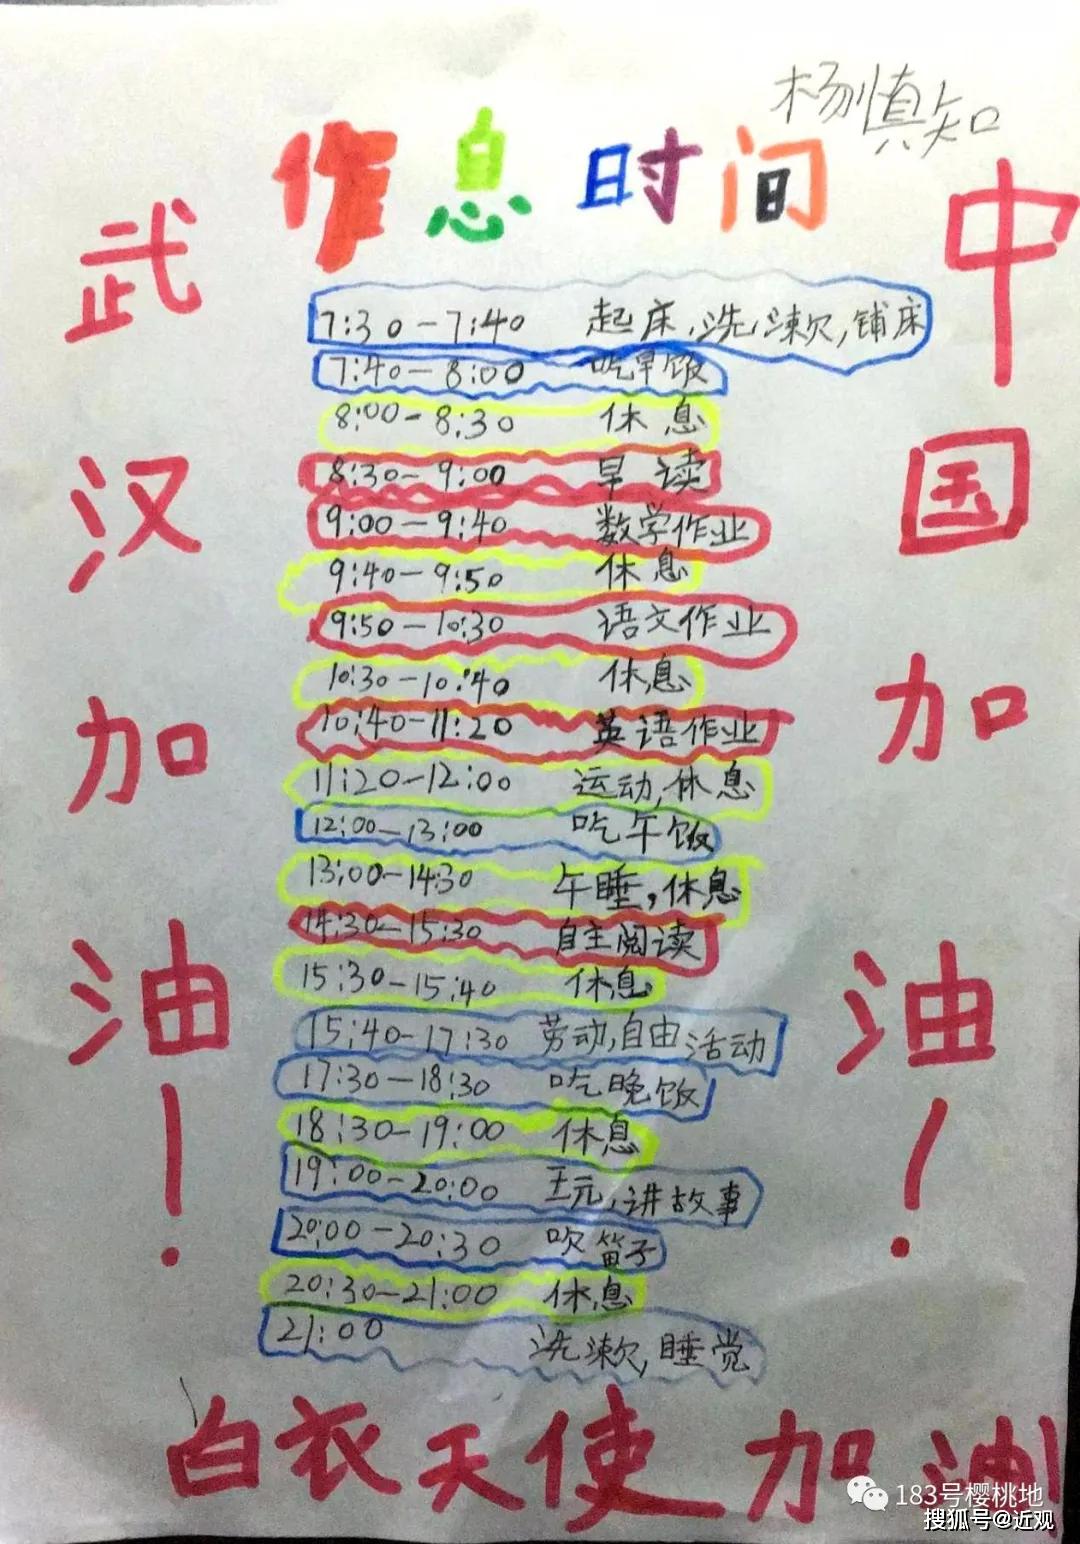 杨慎知
作息时间
武汉加油！
中国加油！
7:30-7:40 起床,洗漱,铺床
7:40-8:00 吃早饭
8:00-8:30 休息
8:30-9:00 早读
9:00-9:40 数学作业
9:40-9:50 休息
9:50-10:30 语文作业
10:30-10:40 休息
10:40-11:20 英语作业
11:20-12:00 运动,休息
12:00-13:00 吃午饭
13:00-14:30 午睡,休息
14:30-15:30 自主阅读
15:30-15:40 休息
15:40-17:30 劳动,自由活动
17:30-18:30 吃晚饭
18:30-19:00 休息
19:00-20:00 王元,讲故事
20:00-20:30 吹笛子
20:30-21:00 休息
21:00 洗漱,睡觉
白衣天使加油!
183号樱桃地
搜狐号@近观